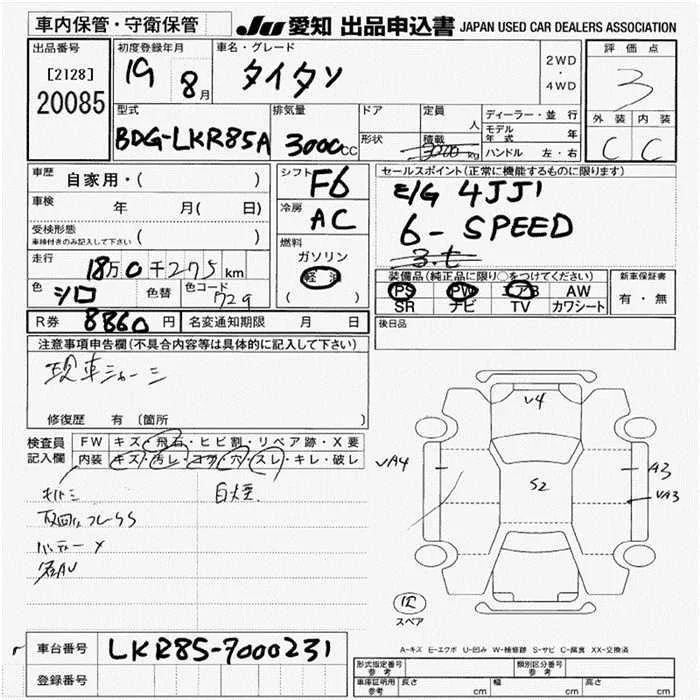 車内保管・守衛保管
JU 愛知 出品申込書 JAPAN USED CAR DEALERS ASSOCIATION
出品番号
[2128]
20085
初度登録年月
19 8月
車名・グレード
タイタン
2WD
・
4WD
評価点
3
外装 内装
C C
型式
BDG-LKR85A
排気量
3000cc
ドア
形状
定員
人
積載
3000kg
ディーラー・並行
モデル年式 年
ハンドル 左・右
車歴 自家用・( )
車検 年 月( 日)
受検形態
車検付きのみ記入して下さい ( )
走行 18万0千275km
色 シロ 色替 色コード 729
R券 8860円 名変通知期限 月 日
シフト F6
冷房 AC
燃料
ガソリン
軽油
( )
セールスポイント(正常に機能するものに限ります)
E/G 4JJ1
6-SPEED
装備品(純正品に限り○をつけてください)
PS PW エアB AW
SR ナビ TV カワシート
新車保証書
有・無
後日品
注意事項申告欄(不具合内容等は具体的に記入して下さい)
現車
修復歴 有 〔箇所 〕
検査員
記入欄
FW キズ・飛石・ヒビ割・リペア跡・X要
内装 キズ・汚レ・コゲ・穴・スレ・キレ・破レ
V4
VA4
S2
A3
VA3
スペア
A-キズ E-エクボ U-凹み W-補修跡 S-サビ C-腐食 XX-交換済
車台番号 LKR85-7000231
登録番号
形式指定番号
参考
類別区分番号
参考
車庫証明用
参考
長さ cm 幅 cm 高さ cm